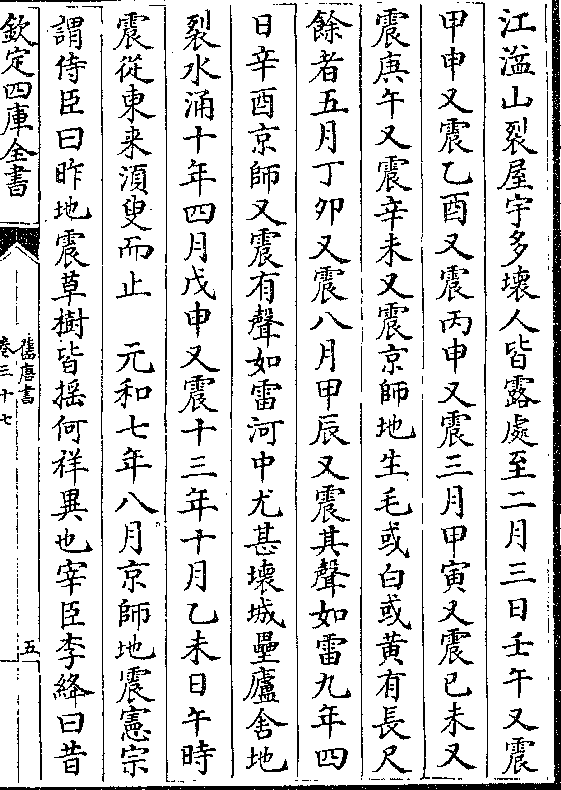 江溢山裂屋宇多壊人皆露處至二月三日壬午又震
甲申又震乙酉又震丙申又震三月甲寅又震己未又
震庚午又震辛未又震京師地生毛或白或黄有長尺
餘者五月丁卯又震八月甲辰又震其聲如雷九年四
日辛酉京師又震有聲如雷河中尤甚壊城壘廬舍地
裂水涌十年四月戊申又震十三年十月乙未日午時
震從東来湏叟而止　元和七年八月京師地震憲宗
謂侍臣曰昨地震草樹皆揺何祥異也宰臣李絳曰昔
欽定四庫全書
舊唐書
卷三十七
五